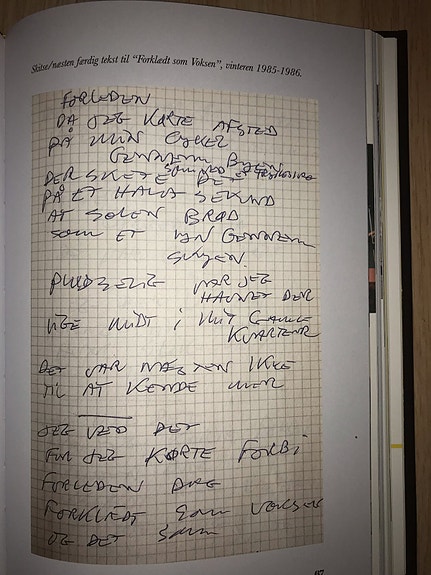 Skitse/næsten færdig tekst til "Forklædt som Voksen", vinteren 1985-1986.
FORLEDEN
DA JEG KØRTE AFSTED
PÅ MIN CYKEL
GENNEM BYEN
DER SKETE DET
PÅ ET HALVT SEKUND
AT SOLEN BRØD
SOM ET LYN GENNEM
SKYEN.
PLUDSELIG VAR JEG
HAVNET DER
LIGE MIDT I MIT GAMLE
KVARTER
DET VAR NÆSTEN IKKE
TIL AT KENDE MER
JEG VED DET
FOR JEG KØRTE FORBI
FORLEDEN DAG
FORKLÆDT SOM VOKSEN
OG DET SOM